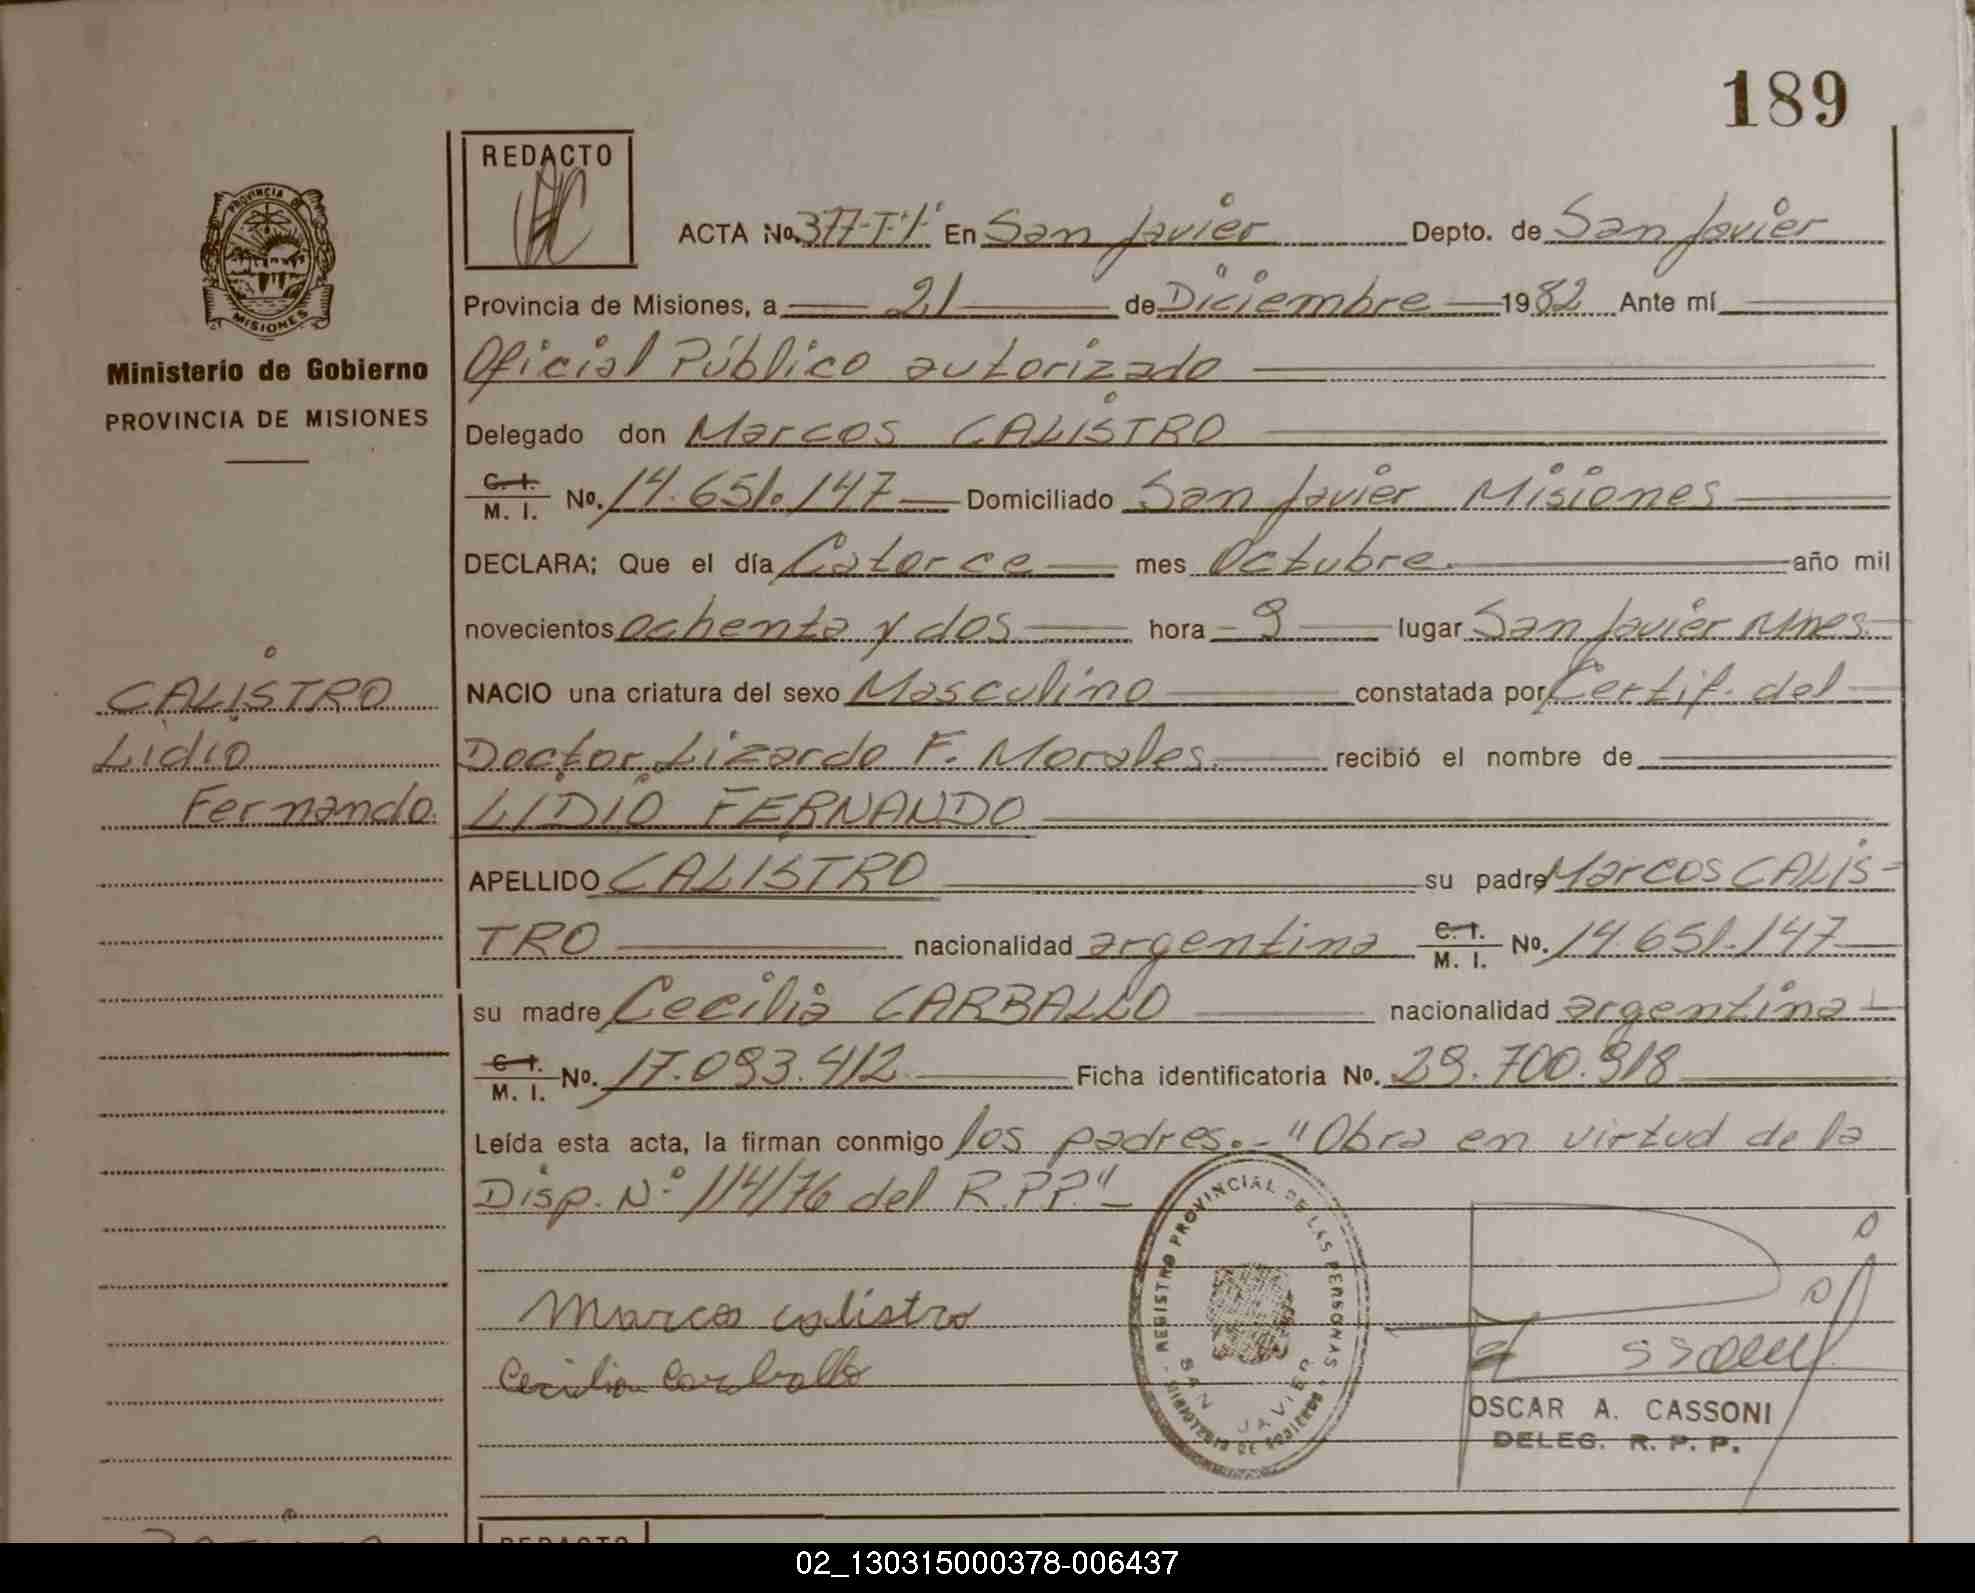 189
REDACTO
PROVINCIA DE
MISIONES
Ministerio de Gobierno
PROVINCIA DE MISIONES
ACTA No. 377-T·1· En San Javier Depto. de San Javier
Provincia de Misiones, a 21 de Diciembre 1982 Ante mí
Oficial Público autorizado
Delegado don Marcos CALISTRO
C. I.
M. I. No. 14.651.147 Domiciliado San Javier Misiones
DECLARA; Que el día Catorce mes Octubre. año mil
novecientos ochenta y dos hora 9 lugar San Javier Mnes.
CALISTRO
Lidio
Fernando.
NACIO una criatura del sexo Masculino constatada por Certif. del
Doctor Lizardo F. Morales. recibió el nombre de
LIDIO FERNANDO
APELLIDO CALISTRO su padre Marcos CALIS-
TRO nacionalidad argentina C. I.
M. I. No. 14.651.147
su madre Cecilia CARBALLO nacionalidad argentina
C. I.
M. I. No. 17.093.412 Ficha identificatoria No. 29.700.918
Leída esta acta, la firman conmigo los padres.- "Obra en virtud de la
Disp. Nº 114/76 del R.P.P."-
REGISTRO PROVINCIAL DE LAS PERSONAS
SAN JAVIER
MINISTERIO DE GOBIERNO
Marcos calistro
Cecilia Carballo
OSCAR A. CASSONI
DELEG. R. P. P.
REDACTO
02_130315000378-006437